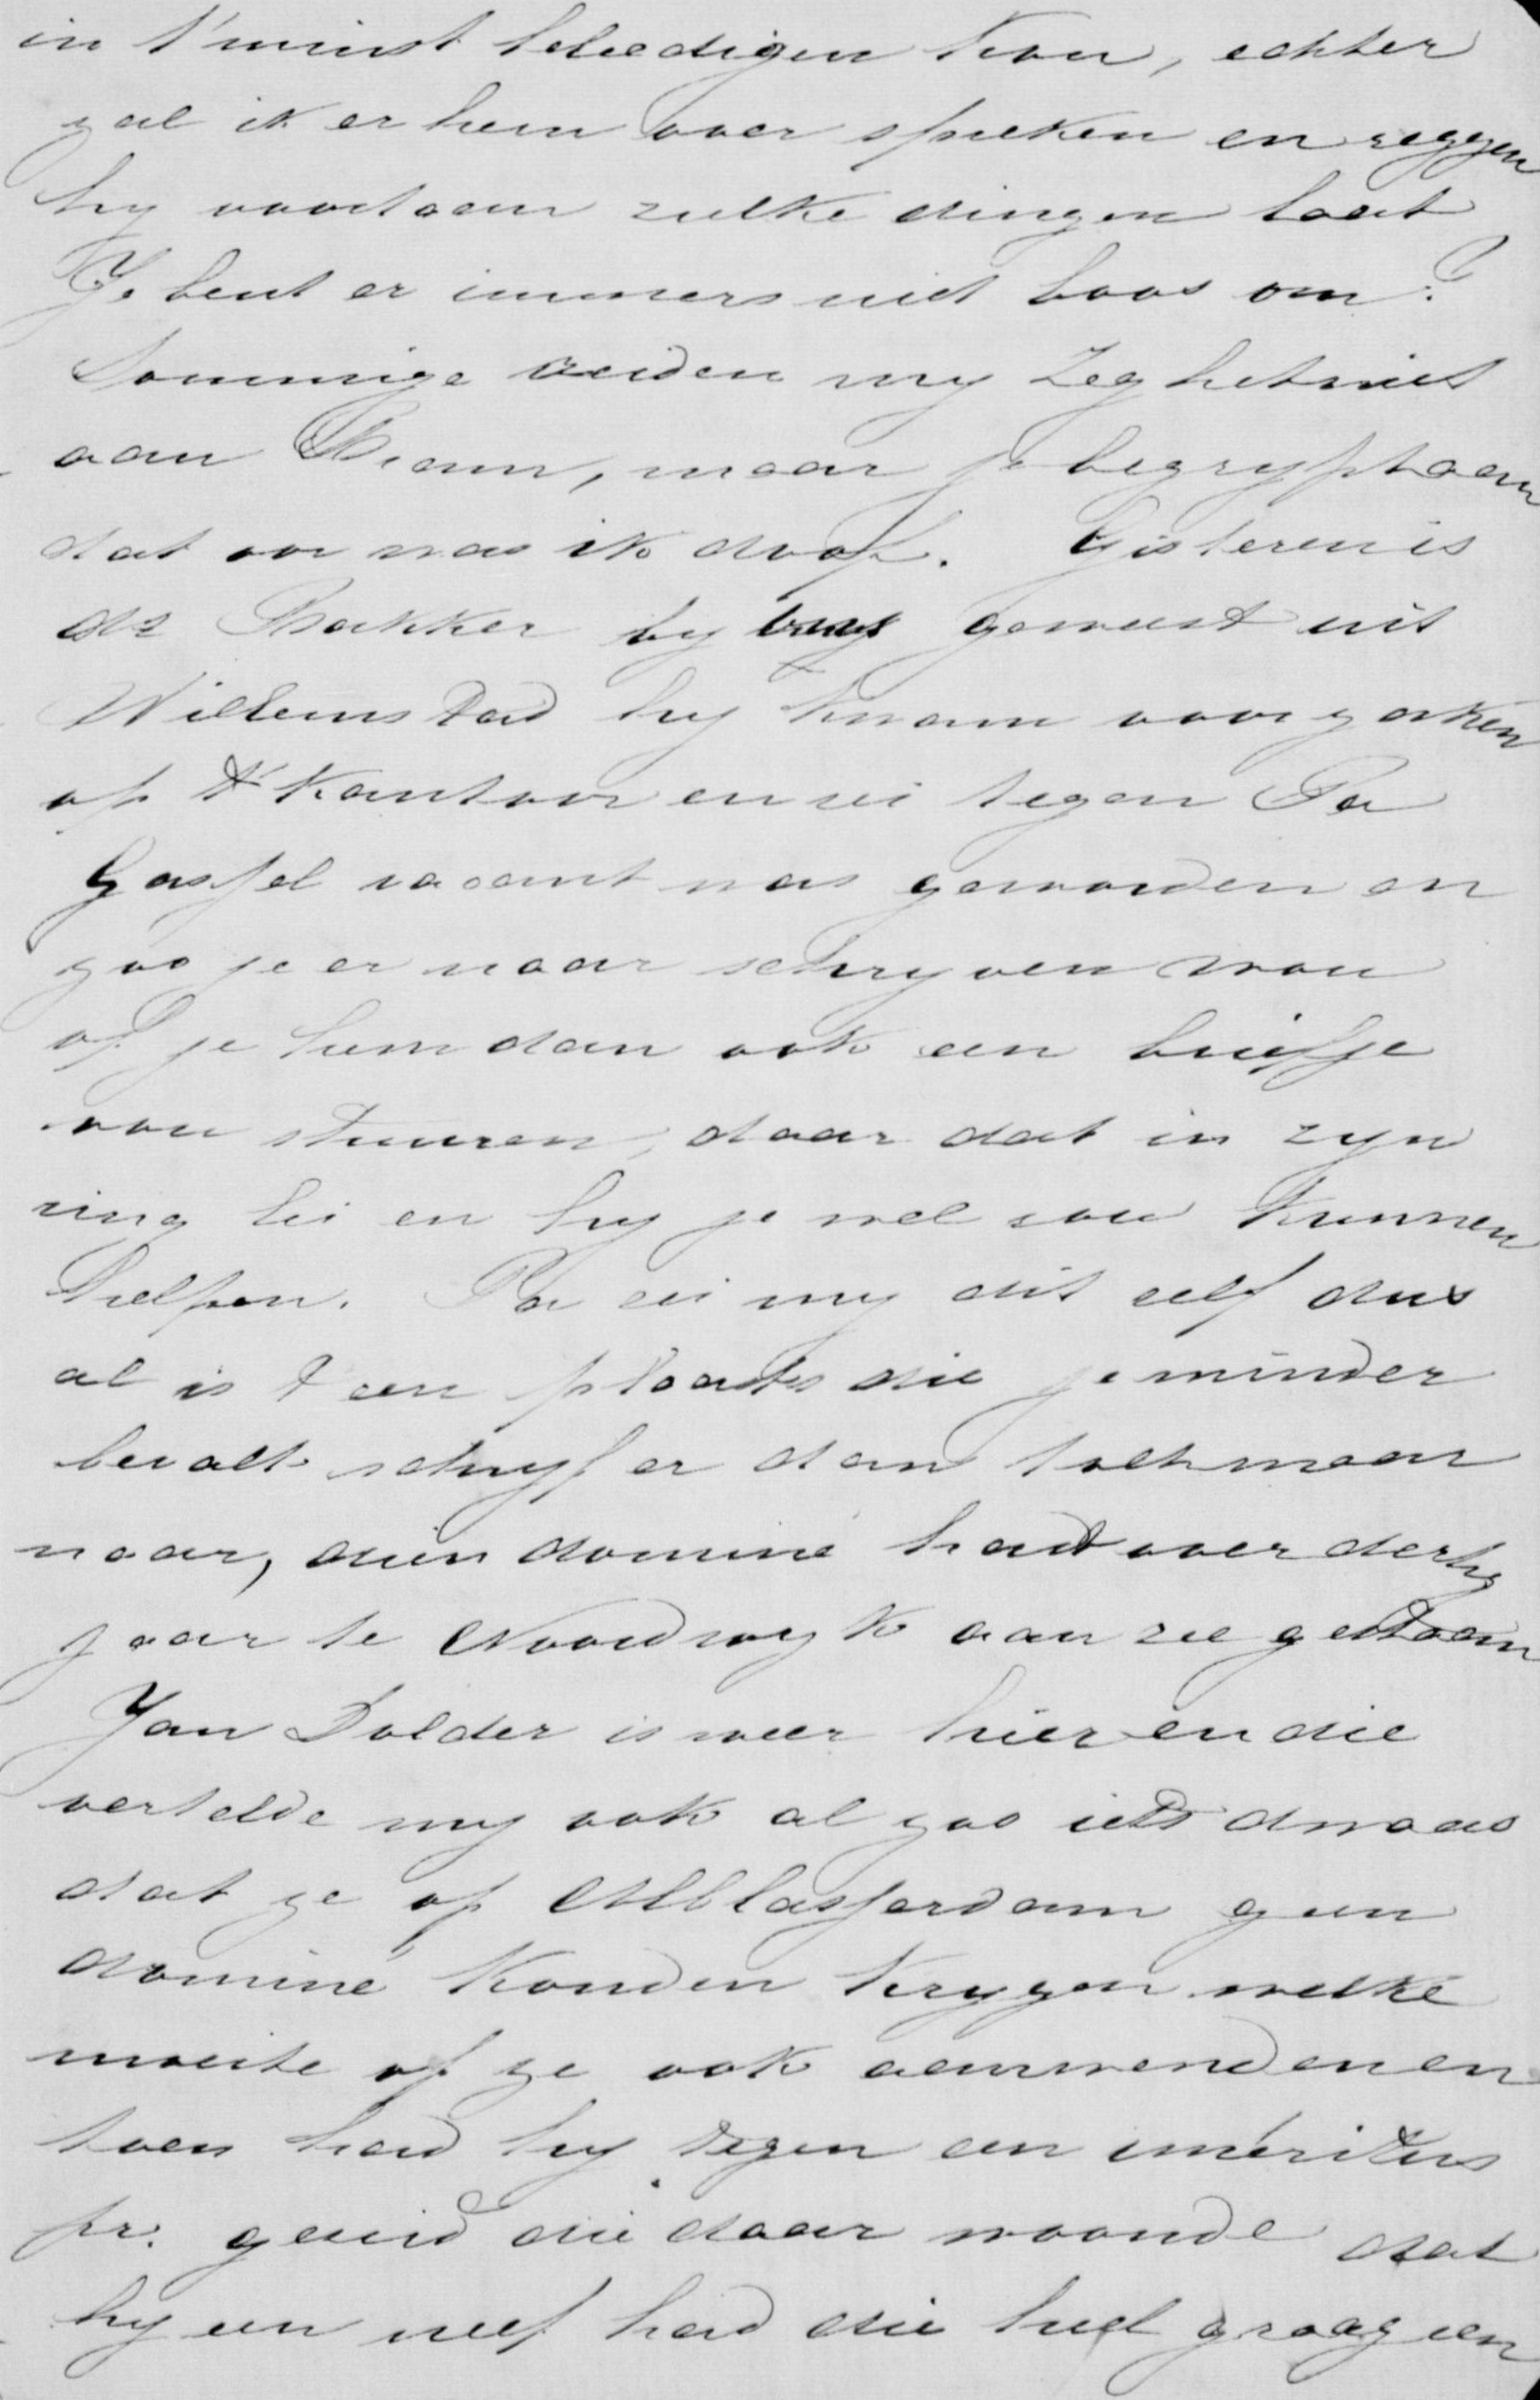 in t'minst beleedigen kon, echter
zal ik er hem over spreken en zeggen
hy voortaan zulke dingen laat
Je bent er immers niet boos om?
Sommige zeiden my Zeg het niet
aan Bram, maar je begrypt aan
dat oor was ik doof. Gisteren is
ds Bakker by geweest uit
Willemstad hy kwam voor zaken
op t' Kantoor en zei tegen Pa
Gastel vacant was geworden en
zoo je er naar schryven wou
of je hem dan ook een briefje
wou stuuren, daar dat in zyn
ring lei en hy je wel zou kunnen
helpen. Pa zei my dit zelf dus
al is t een plaats die je minder
bevalt schryf er dan toch maar
naar, dien dominé had over dertig
jaar te Noordwyk aan zee gestaan
Jan Polder is weer hier en die
vertelde my ook al zoo iets dwaas
dat ze op Alblasserdam geen
dominé konden krygen welke
moeite of ze ook aanwenden en
toen had hy tegen een iméritus
pr. gezeid die daar woonde dat
hy een neef had die heel graag een